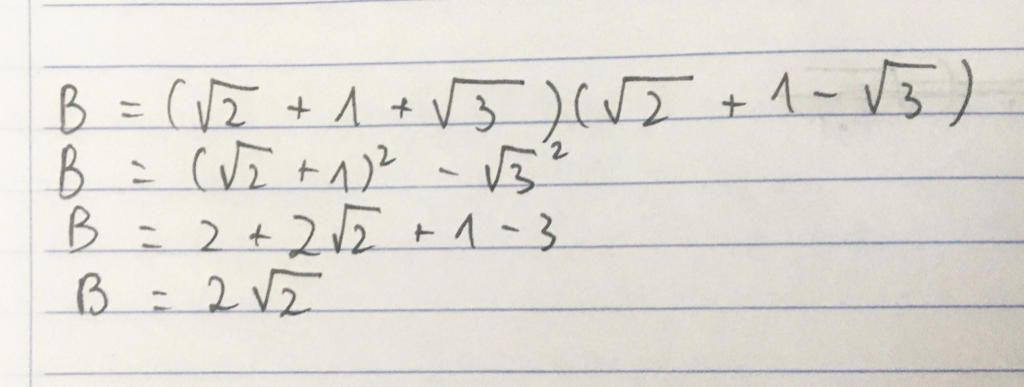 B = (√2 + 1 + √3)(√2 + 1 - √3)
B = (√2 + 1)² - √3²
B = 2 + 2√2 + 1 - 3
B = 2√2